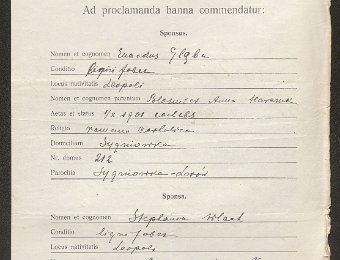 Ad proclamanda banna commendatur:
Sponsus.
Nomen et cognomen
Conditio ligni faber
Locus nativitatis Leopoli
Nomen et cognomen parentum Anna
Aetas et status 1901 coelebs
Religio romano catholica
Domicilium Sygniowka
Nr. domus 212
Parochia Sygniowka-Lwów
Sponsa.
Nomen et cognomen Stephania
Conditio ligni faber
Locus nativitatis Leopoli